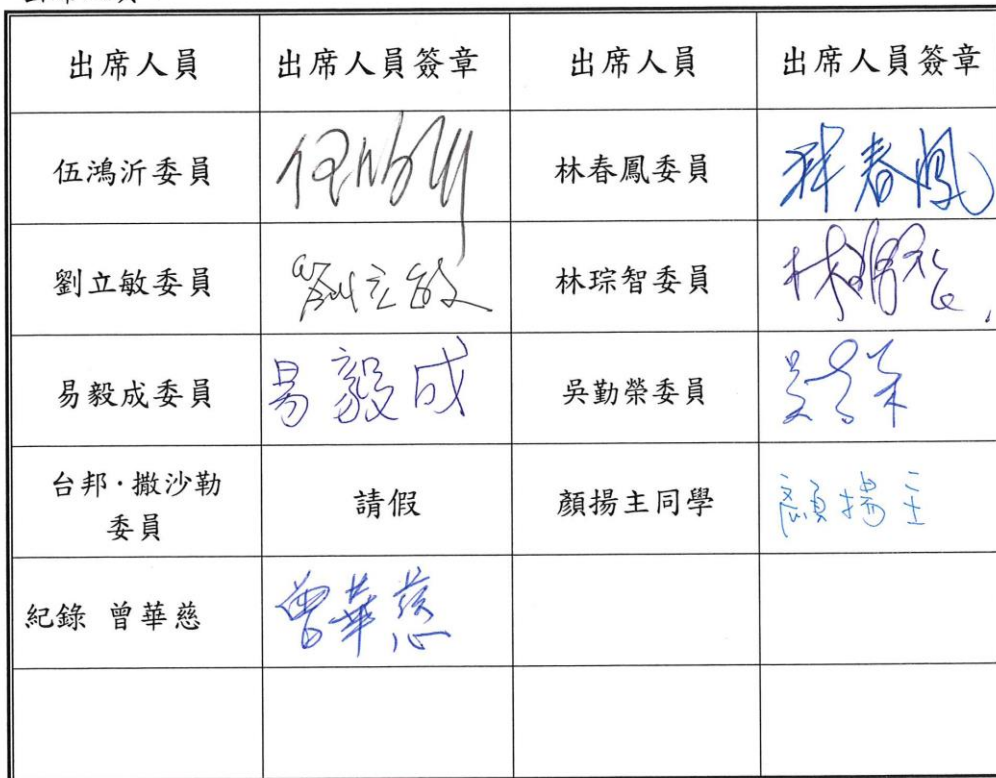 出席人員 出席人員簽章 出席人員 出席人員簽章
伍鴻沂委員 林春鳳委員 林春鳳
劉立敏委員 劉立敏 林琮智委員
易毅成委員 易毅成 吳勤榮委員
台邦·撒沙勒
委員 請假 顏揚主同學 顏揚主
紀錄 曾華慈 曾華慈